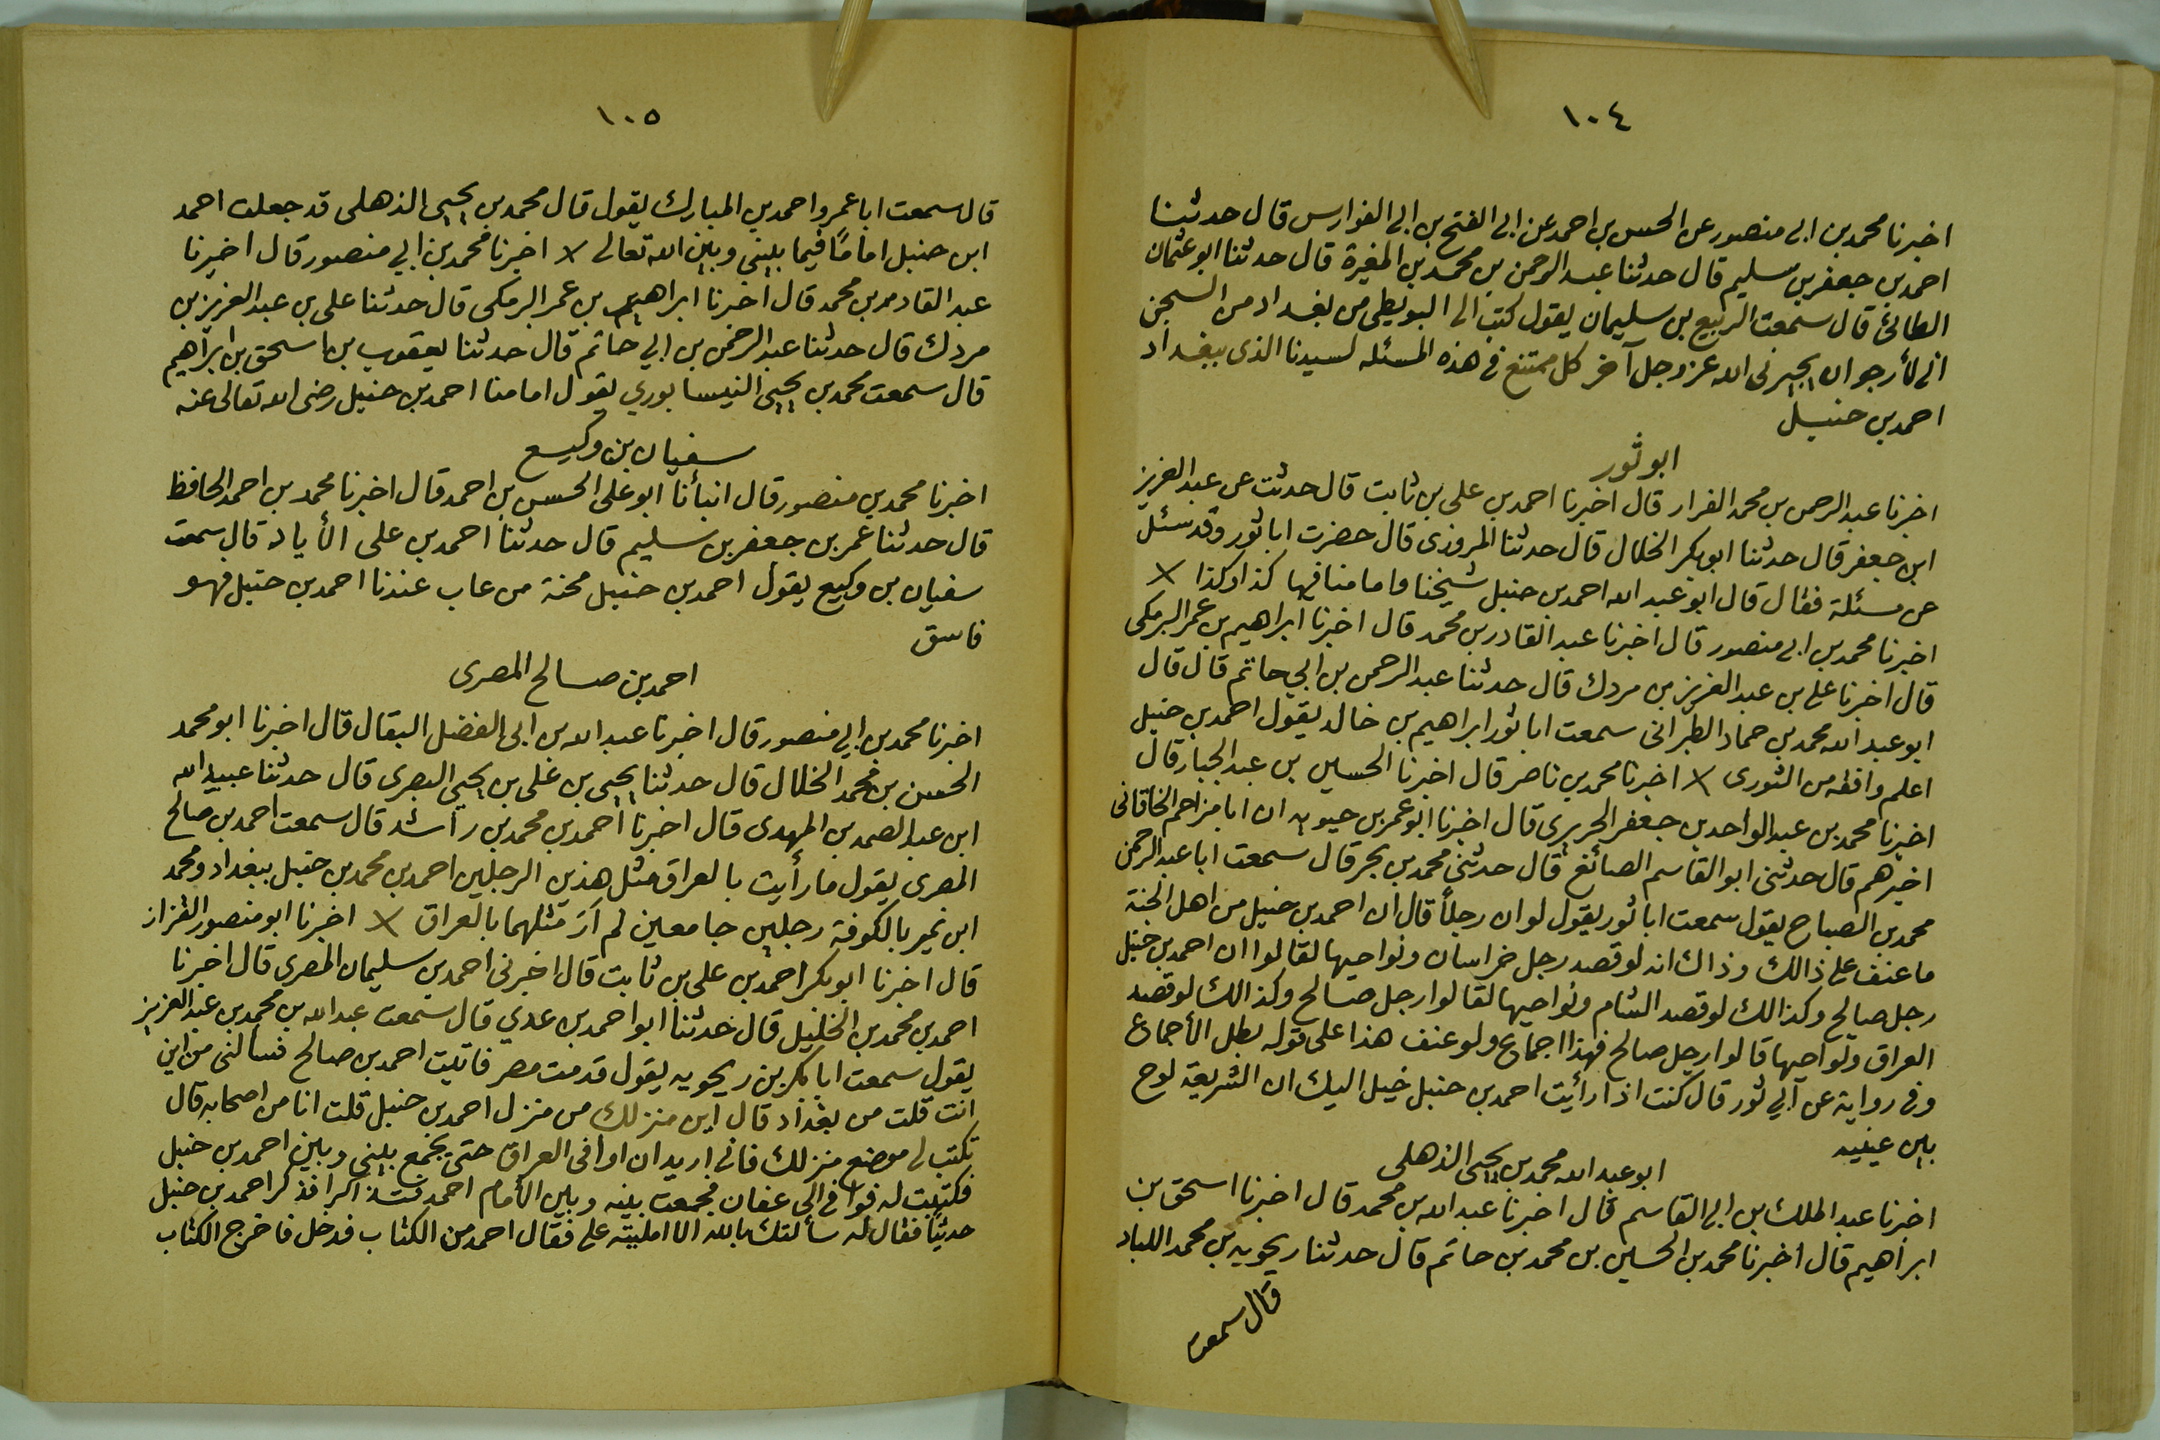 ١٠٤
اخبرنا محمد بن ابي منصور عن الحسن بن احمد عن ابي الفتح بن ابي الفوارس قال حدثنا
احمد بن جعفر بن سليم قال حدثنا عبد الرحمن بن محمد بن المغيرة قال حدثنا ابو عثمان
الطائي قال سمعت الربيع بن سليمان يقول كتب الى البويطي من بغداد من السجن
اني لأرجو ان يجيرني الله عز وجل آخر كل ممتنع في هذه المسئله لسيدنا الذي ببغداد
احمد بن حنبل
ابو ثور
اخبرنا عبد الرحمن بن محمد الفرار قال اخبرنا احمد بن علي بن ثابت قال حدثت عن عبد العزيز
ابن جعفر قال حدثنا ابو بكر الخلال قال حدثنا المروزي قال حضرت ابا ثور وقد سئل
عن مسئلة فقال قال ابو عبد الله احمد بن حنبل شيخنا وامامنا فيها كذا وكذا ×
اخبرنا محمد بن ابي منصور قال اخبرنا عبد القادر بن محمد قال اخبرنا ابراهيم بن عمر البرمكي
قال اخبرنا علي بن عبد العزيز بن مردك قال حدثنا عبد الرحمن بن ابي حاتم قال قال
ابو عبد الله محمد بن حماد الطبراني سمعت ابا ثور ابراهيم بن خالد يقول احمد بن حنبل
اعلم وافقه من الثوري × اخبرنا محمد بن ناصر قال اخبرنا الحسين بن عبد الجبار قال
اخبرنا محمد بن عبد الواحد بن جعفر الحريري قال اخبرنا ابو عمر بن حيويه ان ابا مزاحم الخاقاني
اخبرهم قال حدثني ابو القاسم الصائغ قال حدثني محمد بن بحر قال سمعت ابا عبد الرحمن
محمد بن الصباح يقول سمعت ابا ثور يقول لو ان رجلاً قال ان احمد بن حنبل من اهل الجنة
ما عنف على ذالك وذاك انه لو قصد رجل خراسان ونواحيها لقالوا ان احمد بن حنبل
رجل صالح وكذالك لو قصد الشام ونواحيها لقالوا رجل صالح وكذالك لو قصد
العراق ونواحيها قالوا رجل صالح فهذا اجماع ولو عنف هذا على قوله بطل الأجماع
وفي رواية عن ابي ثور قال كنت اذا رأيت احمد بن حنبل خيل اليك ان الشريعة لوح
بين عينيه
ابو عبد الله محمد بن يحيى الذهلي
اخبرنا عبد الملك بن ابي القاسم قال اخبرنا عبد الله بن محمد قال اخبرنا اسحق بن
ابراهيم قال اخبرنا محمد بن الحسين بن محمد بن حاتم قال حدثنا ريحويه بن محمد اللباد
قال سمعت
١٠٥
قال سمعت ابا عمرو احمد بن المبارك يقول قال محمد بن يحيى الذهلي قد جعلت احمد
ابن حنبل امامًا فيما بيني وبين الله تعالى × اخبرنا محمد بن ابي منصور قال اخبرنا
عبد القادر بن محمد قال اخبرنا ابراهيم بن عمر البرمكي قال حدثنا علي بن عبد العزيز بن
مردك قال حدثنا عبد الرحمن بن ابي حاتم قال حدثنا يعقوب بن اسحق بن ابراهيم
قال سمعت محمد بن يحيى النيسابوري يقول امامنا احمد بن حنبل رضي الله تعالى عنه
سفيان بن وكيع
اخبرنا محمد بن منصور قال انبأنا ابو علي الحسن بن احمد قال اخبرنا محمد بن احمد الحافظ
قال حدثنا عمر بن جعفر بن سليم قال حدثنا احمد بن علي الأياد قال سمعت
سفيان بن وكيع يقول احمد بن حنبل محنة من عاب عندنا احمد بن حنبل فهو
فاسق
احمد بن صالح المصري
اخبرنا محمد بن ابي منصور قال اخبرنا عبد الله بن ابي الفضل البقال قال اخبرنا ابو محمد
الحسن بن محمد الخلال قال حدثنا يحيى بن علي بن يحيى البصري قال حدثنا عبيد الله
ابن عبد الصمد بن المهدي قال اخبرنا احمد بن محمد بن راشد قال سمعت احمد بن صالح
المصري يقول ما رأيت بالعراق مثل هذين الرجلين احمد بن محمد بن حنبل ببغداد ومحمد
ابن نمير بالكوفة رجلين جامعين لم اَرَ مثلهما بالعراق × اخبرنا ابو منصور القزاز
قال اخبرنا ابو بكر احمد بن علي بن ثابت قال اخبرني احمد بن سليمان المصري قال اخبرنا
احمد بن محمد بن الخليل قال حدثنا ابو احمد بن عدي قال سمعت عبد الله بن محمد بن عبد العزيز
يقول سمعت ابا بكر بن ريحويه يقول قدمت مصر فاتيت احمد بن صالح فسألني من اين
انت قلت من بغداد قال اين منزلك من منزل احمد بن حنبل قلت انا من اصحابه قال
تكتب لي موضع منزلك فاني اريد ان اوافي العراق حتى يجمع بيني وبين احمد بن حنبل
فكتبت له فوافى الى عفان فجمعت بينه وبين الأمام احمد فتذاكرا فذكر احمد بن حنبل
حديثًا فقال له سألتك بالله الا امليته علي فقال احمد من الكتاب فدخل فاخرج الكتاب